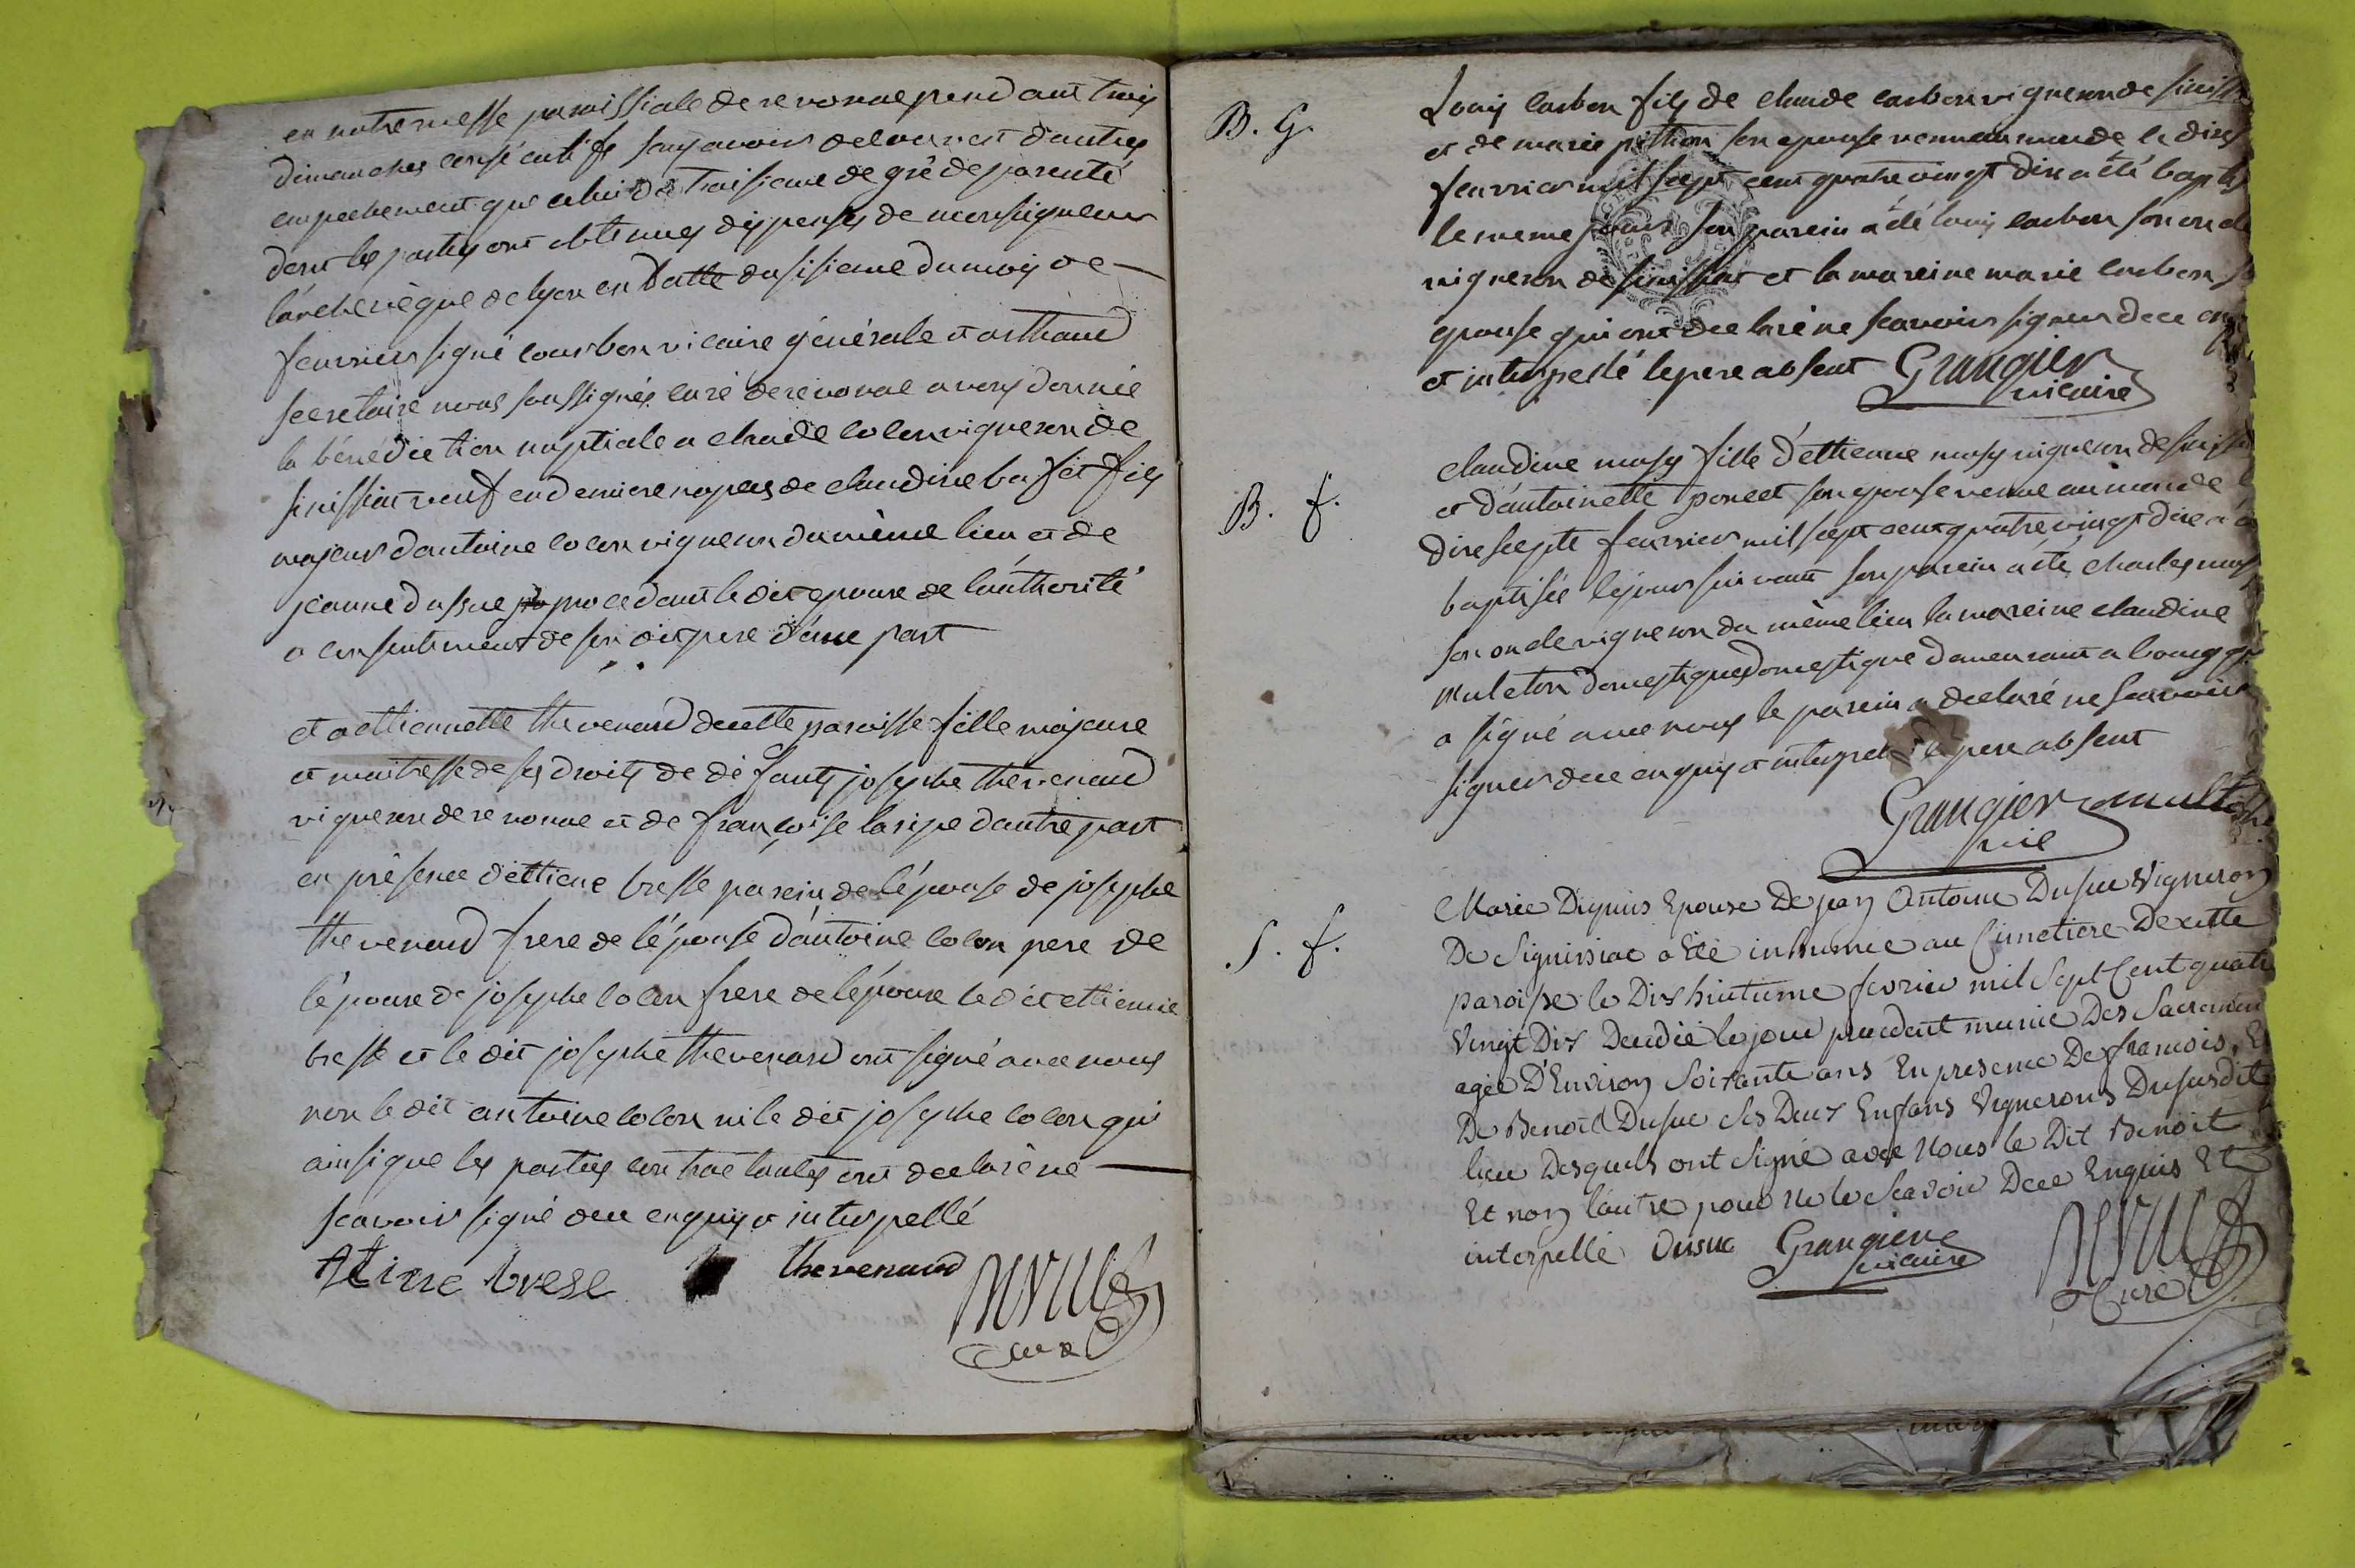 en notre messe paroissiale de revonne pendant trois
dimanches consécutifs sans avoir delouvert d'autres
empechement que celui de troisieme degré de parenté
dont les parties ont obtenues dispenses de monseigneur
l'archevêque de lyon en datte du sisieme du mois de
fevrier signé courbon vicaire générale et
secretaire nous soussignés curé de revonne avons donnée
la bénédiction nuptiale a claude colon vigneron de
sinissiat veuf en derniere nopces de claudine fils
majeur d'antoine colon vigneron du même lieu et de
jeanne dussue procedant le dit epoux de l'authorité
o consentement de son dit pere d'une part
et a ettiennette thevenard de cette paroisse fille majeure
et maitresse de ses droits de défunts josephe thevenard
vigneron de revonne et de françoise laripe d'autre part
en présence d'ettiene bresse parein de l'épouse de josephe
thevenard frere de l'épouse d'antoine colon pere de
l'époux de josephe colon frere de l'époux le dit ettienne
bresse et le dit josephe thevenard ont signé avec nous
non le dit antoine colon ni le dit josephe colon qui
ainsi que les parties contractantes ont declaré ne
scavoir signé de ce enquis et interpellé
Atinne brese thevenard
curé
B. G.
Louis carbon fils de claude carbon vigneron de
et de marie pithion son epouse venu au monde le
fevrier mil sept cent quatre vingt dix a été
le meme jour son parein a été louis carbon son
vigneron de sinissiat et la mareine marie carbon
epouse qui ont declaré ne scavoir signer de ce
et interpellé le pere absent Grangier
vicaire
B. f.
claudine masy fille d'ettienne masy vigneron de
et d'antoinette poncet son epouse venue au monde
dix septe fevrier mil sept cent quatre vingt dix a
baptisée le jour suivant son parein a été charles
son oncle vigneron du même lieu la mareine claudine
muleton domestique domestique demeurant a bourg
a signé avec nous le parein a declaré ne scavoir
signer de ce enquis et interpelé le pere absent
Grangier
vic
S. f.
Marie Diguis Epouse De jean Antoine Dusue Vigneron
De Signissiac a Eté inhumée au Cimetiere De cette
paroisse le Dix huitieme fevrier mil Sept Cent quatre
Vingt Dix Decedée le jour precedent munie Des
agée D'Environ Soixante ans En presence De francois Et
De Benoit Dusue ses Deux Enfans Vignerons Du susdit
lieu Desquels ont Signé avec Nous le Dit Benoit
Et non l'autre pour Ne le Scavoir De ce Enquis Et
interpellé Dusuc Grangier
vicaire
Curé